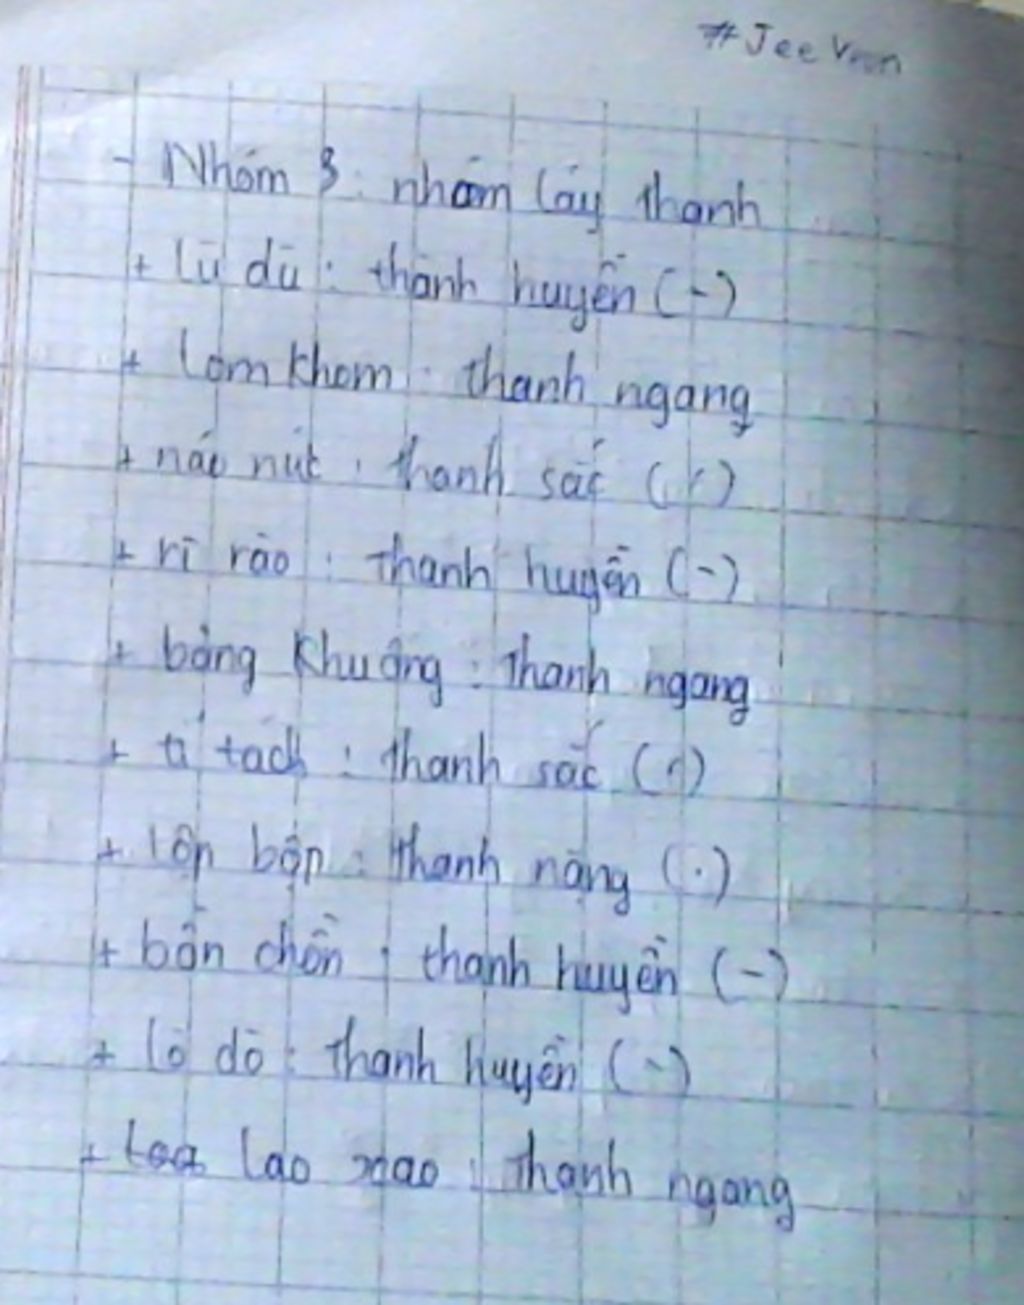 # Jee Vmon
- Nhóm 3: nhóm láy thanh
+ lù dù : thanh huyền (-)
+ lom khom : thanh ngang
+ náo nức : thanh sắc (/)
+ rì rào : thanh huyền (-)
+ bâng khuâng : thanh ngang
+ tí tách : thanh sắc (/)
+ lộp bộp : thanh nặng (.)
+ bồn chồn : thanh huyền (-)
+ lò dò : thanh huyền (-)
+ lao xao : thanh ngang